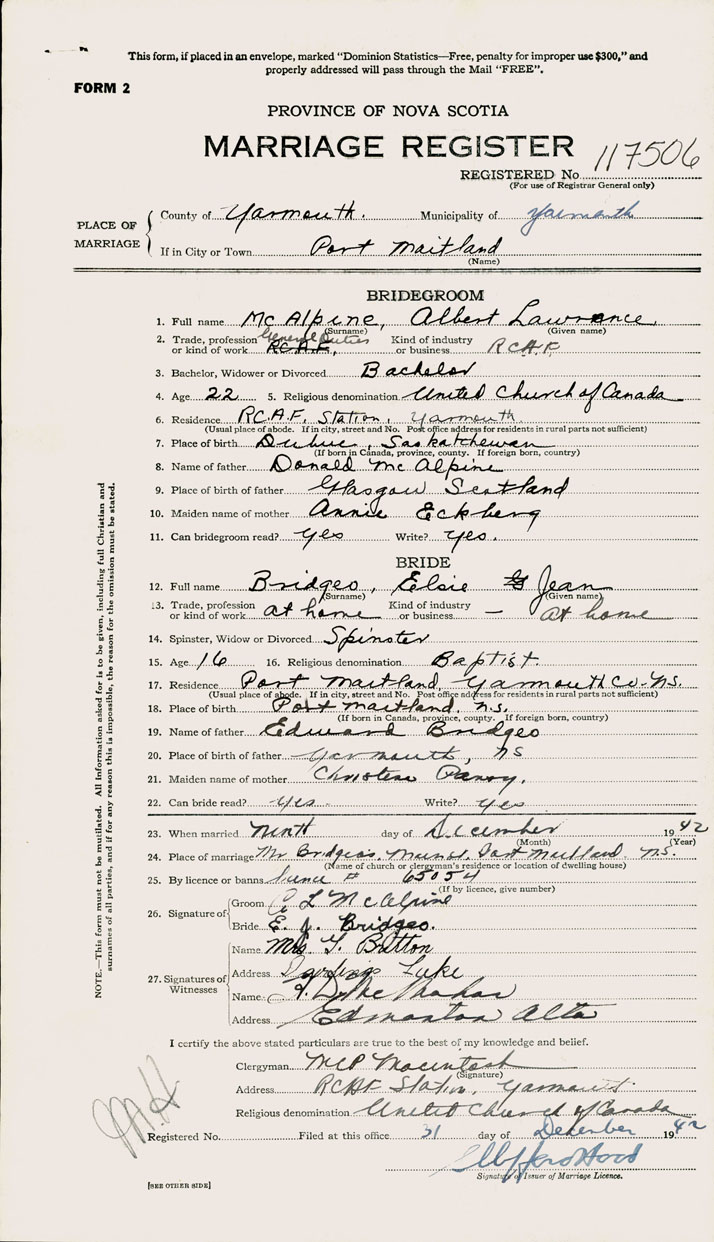 This form, if placed in an envelope, marked "Dominion Statistics—Free, penalty for improper use $300," and
properly addressed will pass through the Mail "FREE".
FORM 2
PROVINCE OF NOVA SCOTIA
MARRIAGE REGISTER
117506
REGISTERED No.
(For use of Registrar General only)
PLACE OF MARRIAGE
County of Yarmouth. Municipality of Yarmouth
If in City or Town Port Maitland
(Name)
BRIDEGROOM
1. Full name McAlpine, Albert Lawrence
(Surname) (Given name)
2. Trade, profession or kind of work General Duties R.C.A.F. Kind of industry or business RCAF
3. Bachelor, Widower or Divorced Bachelor
4. Age 22 5. Religious denomination United Church of Canada
6. Residence R.C.A.F. Station, Yarmouth
(Usual place of abode. If in city, street and No. Post office address for residents in rural parts not sufficient)
7. Place of birth Dubuc, Saskatchewan
(If born in Canada, province, county. If foreign born, country)
8. Name of father Donald McAlpine
9. Place of birth of father Glasgow Scotland
10. Maiden name of mother Annie Eckberg
11. Can bridegroom read? yes Write? yes.
BRIDE
12. Full name Bridgeo, Elsie Jean
(Surname) (Given name)
13. Trade, profession or kind of work at home Kind of industry or business — at home
14. Spinster, Widow or Divorced Spinster
15. Age 16 16. Religious denomination Baptist.
17. Residence Port Maitland, Yarmouth Co. N.S.
(Usual place of abode. If in city, street and No. Post office address for residents in rural parts not sufficient)
18. Place of birth Port Maitland, N.S.
(If born in Canada, province, county. If foreign born, country)
19. Name of father Edward Bridgeo
20. Place of birth of father Yarmouth, NS
21. Maiden name of mother Christene
22. Can bride read? yes Write? yes
23. When married Ninth day of December 1942
(Month) (Year)
24. Place of marriage Mr Bridgeo's Port Maitland, N.S.
(Name of church or clergyman's residence or location of dwelling house)
25. By licence or banns licence # 65054
(If by licence, give number)
26. Signature of
Groom A L McAlpine
Bride E. J. Bridgeo.
27. Signatures of Witnesses
Name Mrs. Britton
Address Darlings Lake
Name
Address Edmonton Alta
I certify the above stated particulars are true to the best of my knowledge and belief.
Clergyman Macintosh
(Signature)
Address RCAF Station, Yarmouth.
Religious denomination United Church of Canada
Registered No. Filed at this office 31 day of December 1942
Clifford Hood
Signature of Issuer of Marriage Licence.
[SEE OTHER SIDE]
NOTE.—This form must not be mutilated. All information asked for is to be given, including full Christian and
surnames of all parties, and if for any reason this is impossible, the reason for the omission must be stated.